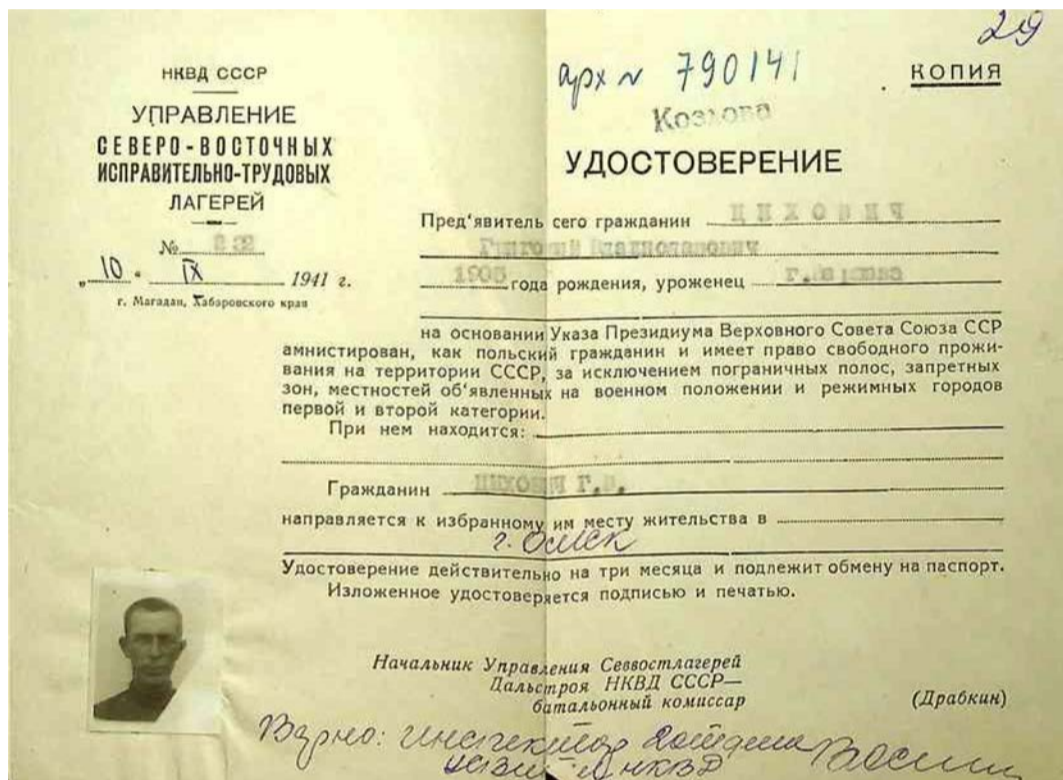 29
НКВД СССР
УПРАВЛЕНИЕ
СЕВЕРО-ВОСТОЧНЫХ
ИСПРАВИТЕЛЬНО-ТРУДОВЫХ
ЛАГЕРЕЙ
№ 232
„10“ IX 1941 г.
г. Магадан, Хабаровского края
арх № 790141
КОПИЯ
Козлова
УДОСТОВЕРЕНИЕ
Пред'явитель сего гражданин ЦИХОВИЧ
Григорий Владиславович
1905 года рождения, уроженец г.Варшава
на основании Указа Президиума Верховного Совета Союза ССР
амнистирован, как польский гражданин и имеет право свободного прожи-
вания на территории СССР, за исключением пограничных полос, запретных
зон, местностей об'явленных на военном положении и режимных городов
первой и второй категории.
При нем находится:
Гражданин ЦИХОВИЧ Г.В.
направляется к избранному им месту жительства в
г. Омск
Удостоверение действительно на три месяца и подлежит обмену на паспорт.
Изложенное удостоверяется подписью и печатью.
Начальник Управления Севвостлагерей
Дальстроя НКВД СССР—
батальонный комиссар (Драбкин)
Верно: инспектор
НКВД